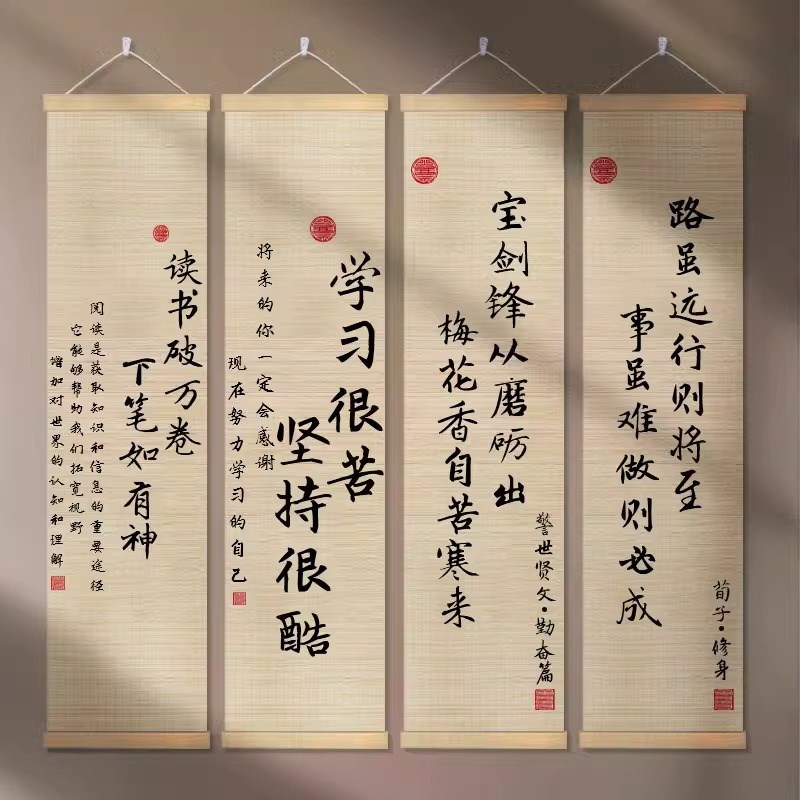 路虽远行则将至
事虽难做则必成
荀子·修身
宝剑锋从磨砺出
梅花香自苦寒来
警世贤文·勤奋篇
学习很苦
坚持很酷
将来的你一定会感谢
现在努力学习的自己
读书破万卷
下笔如有神
阅读是获取知识和信息的重要途径
它能够帮助我们拓宽视野
增加对世界的认知和理解